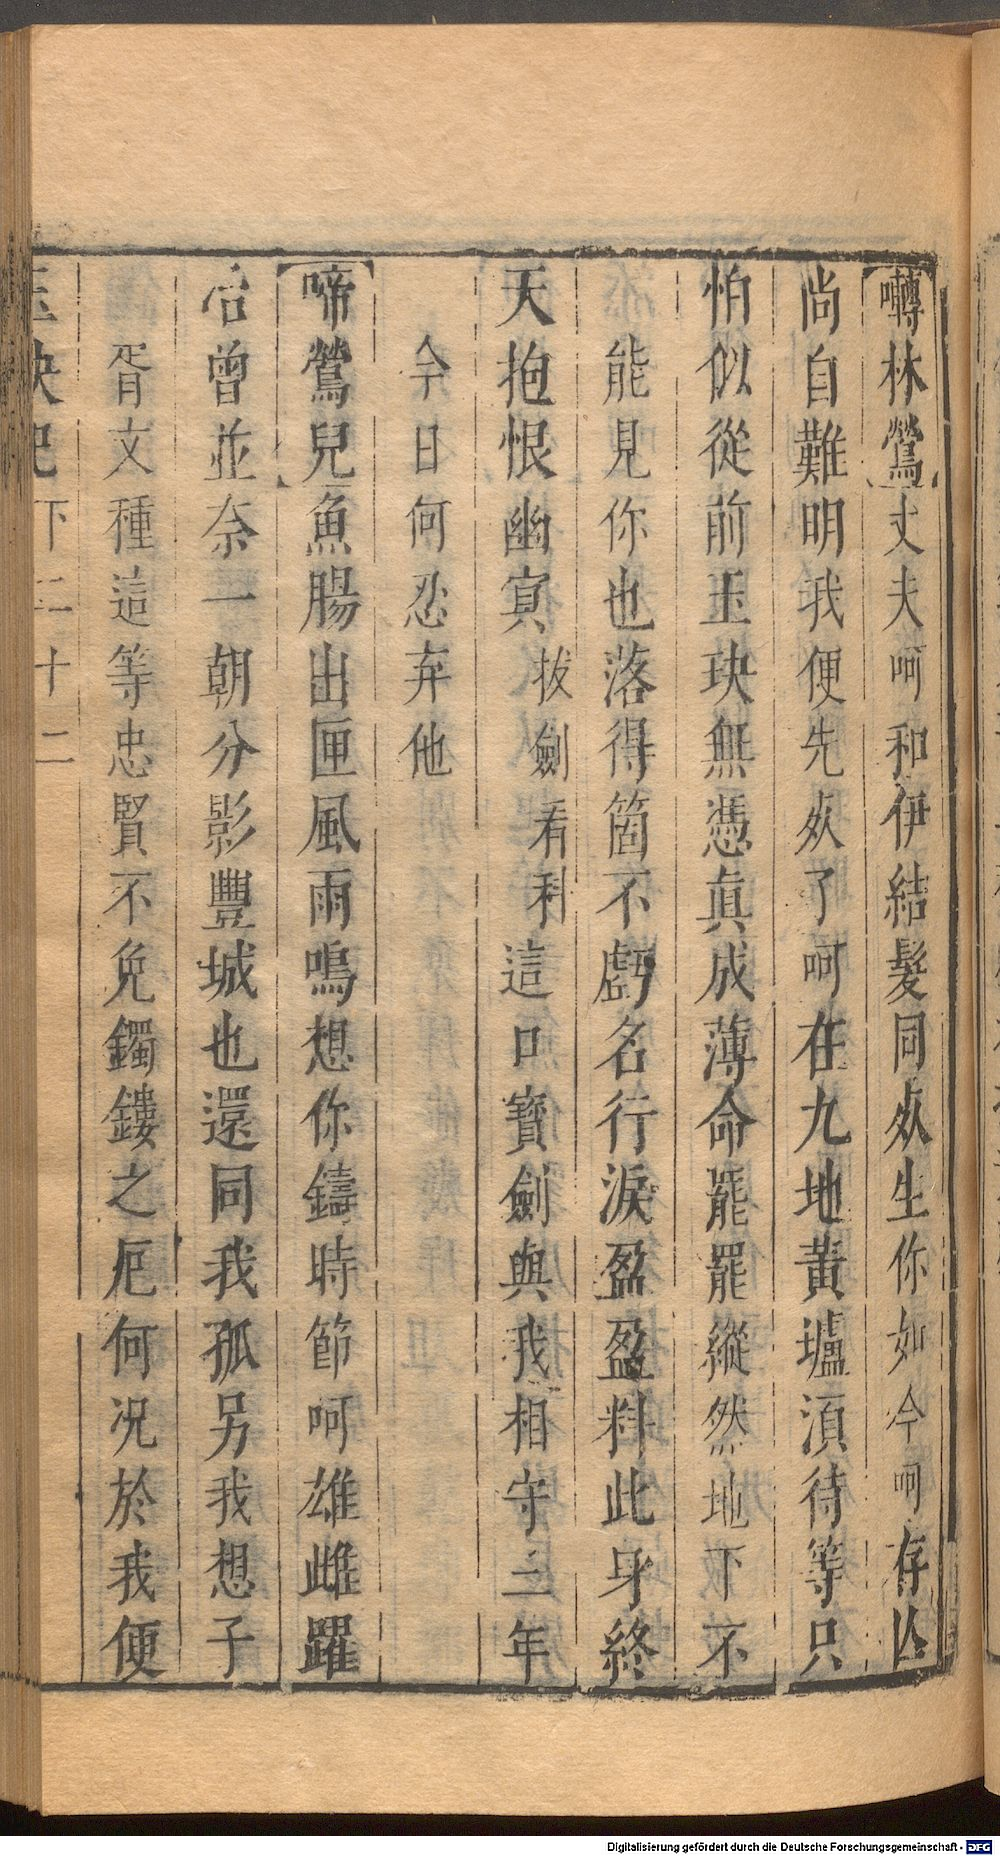 【囀林鶯】丈夫呵和伊結髮同歿生你如今呵存亾
尚自難明我便先歿了呵在九地黃壚湏待等只
怕似從前玉玦無憑眞成薄命罷罷縱然地下不
能見你也落得箇不虧名行淚盈盈料此身終
天抱恨幽冥拔劍看科這口寶劍與我相守三年
今日何忍弃他
【啼鶯兒】魚腸出匣風雨鳴想你鑄時節呵雄雌躍
冶曾並奈一朝分影豐城也還同我孤另我想子
胥文種這等忠賢不免鐲鏤之厄何况於我便
玉玦記 下 二十二
Digitalisierung gefördert durch die Deutsche Forschungsgemeinschaft - DFG